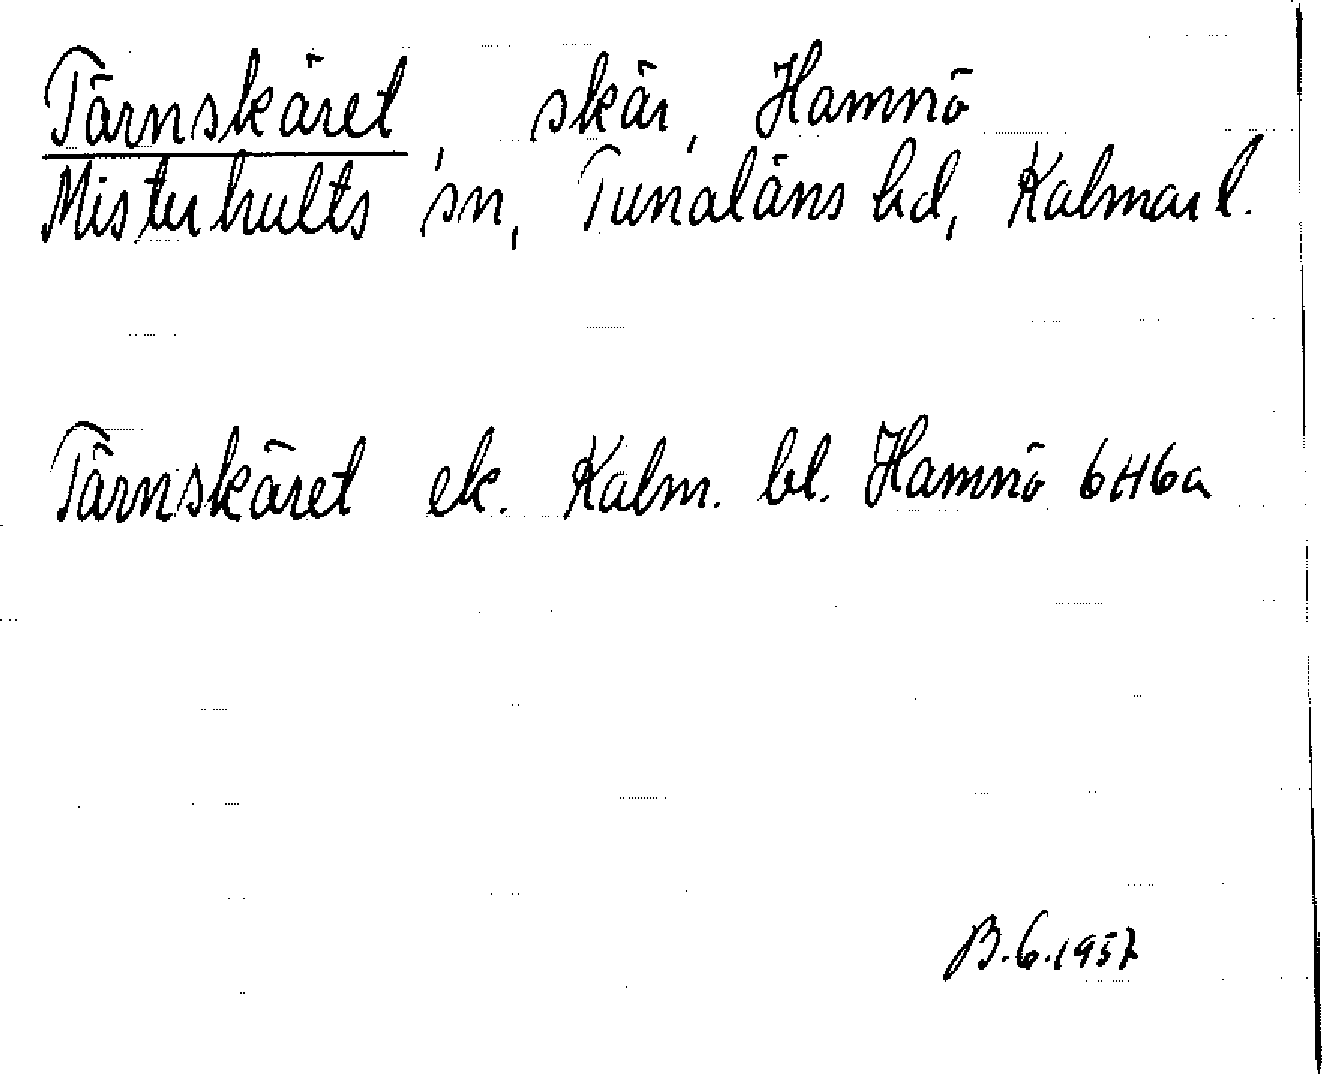 Tärnskäret, skär, Hamnö
Misterhults sn, Tunaläns hd, Kalmar l.
Tärnskäret ek. Kalm. bl. Hamnö 6H6a
B.G. 1957